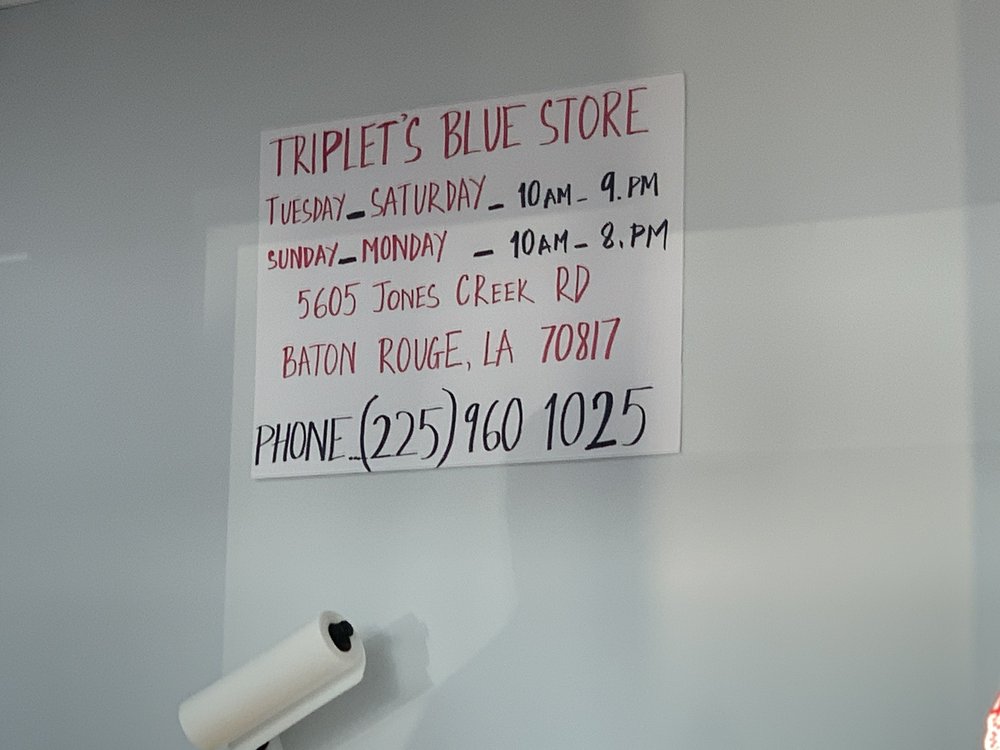 TRIPLET'S BLUE STORE
TUESDAY_SATURDAY_ 10AM_ 9.PM
SUNDAY_MONDAY _ 10AM_ 8.PM
5605 JONES CREEK RD
BATON ROUGE, LA 70817
PHONE...(225)960 1025